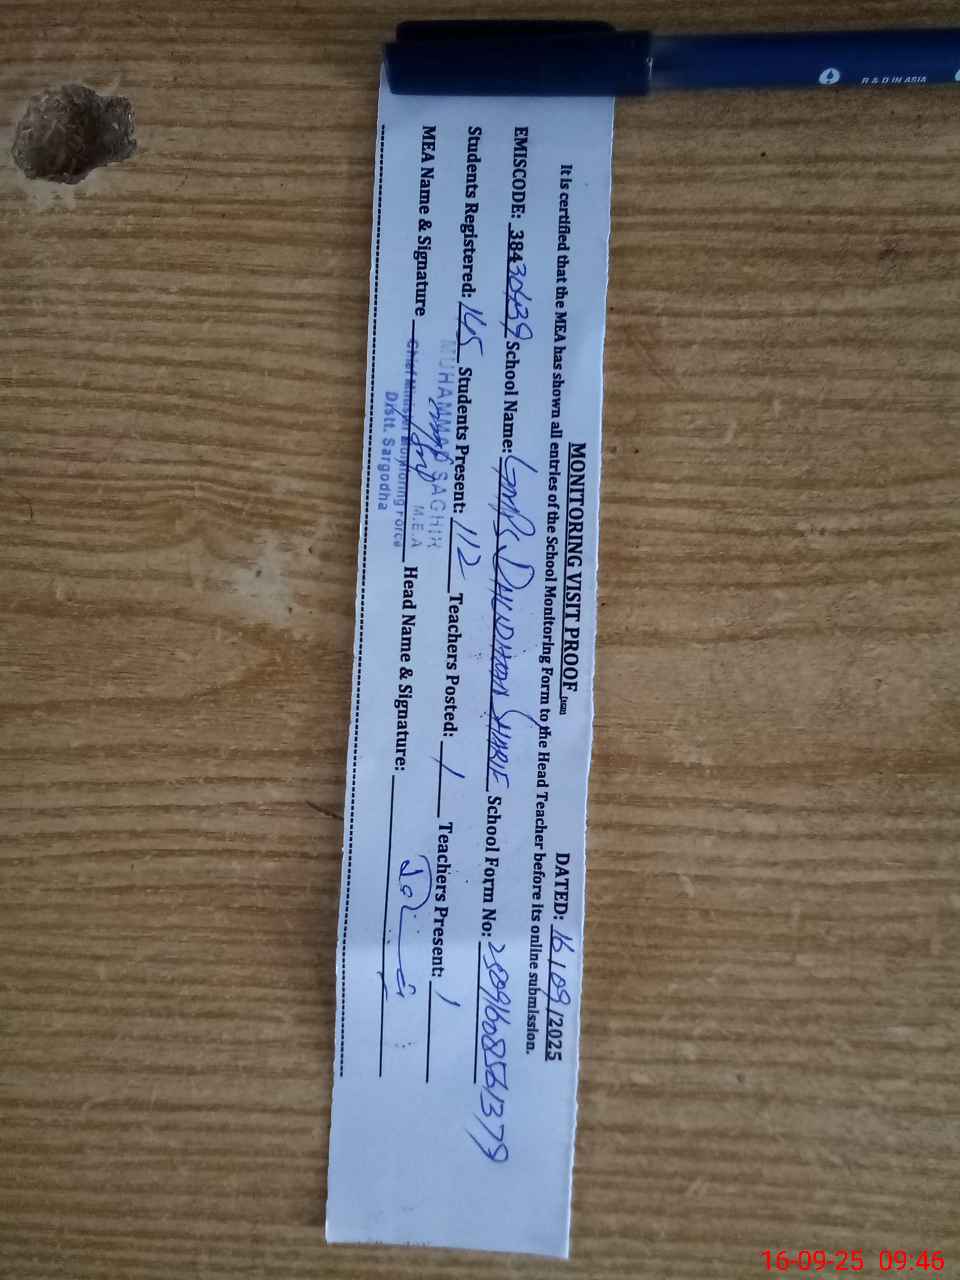 MONITORING VISIT PROOF DATED: 16/09/2025
It is certified that the MEA has shown all entries of the School Monitoring Form to the Head Teacher before its online submission.
EMISCODE: 38430439 School Name: GMPS DHUDHON SHARIF School Form No: 25091608561379
Students Registered: 145 Students Present: 112 Teachers Posted: 1 Teachers Present: 1
MEA Name & Signature Head Name & Signature:
MUHAMMAD SAGHIR
M.E.A
Chief Minister Monitoring Force
Distt. Sargodha
R & D IN ASIA
16-09-25 09:46